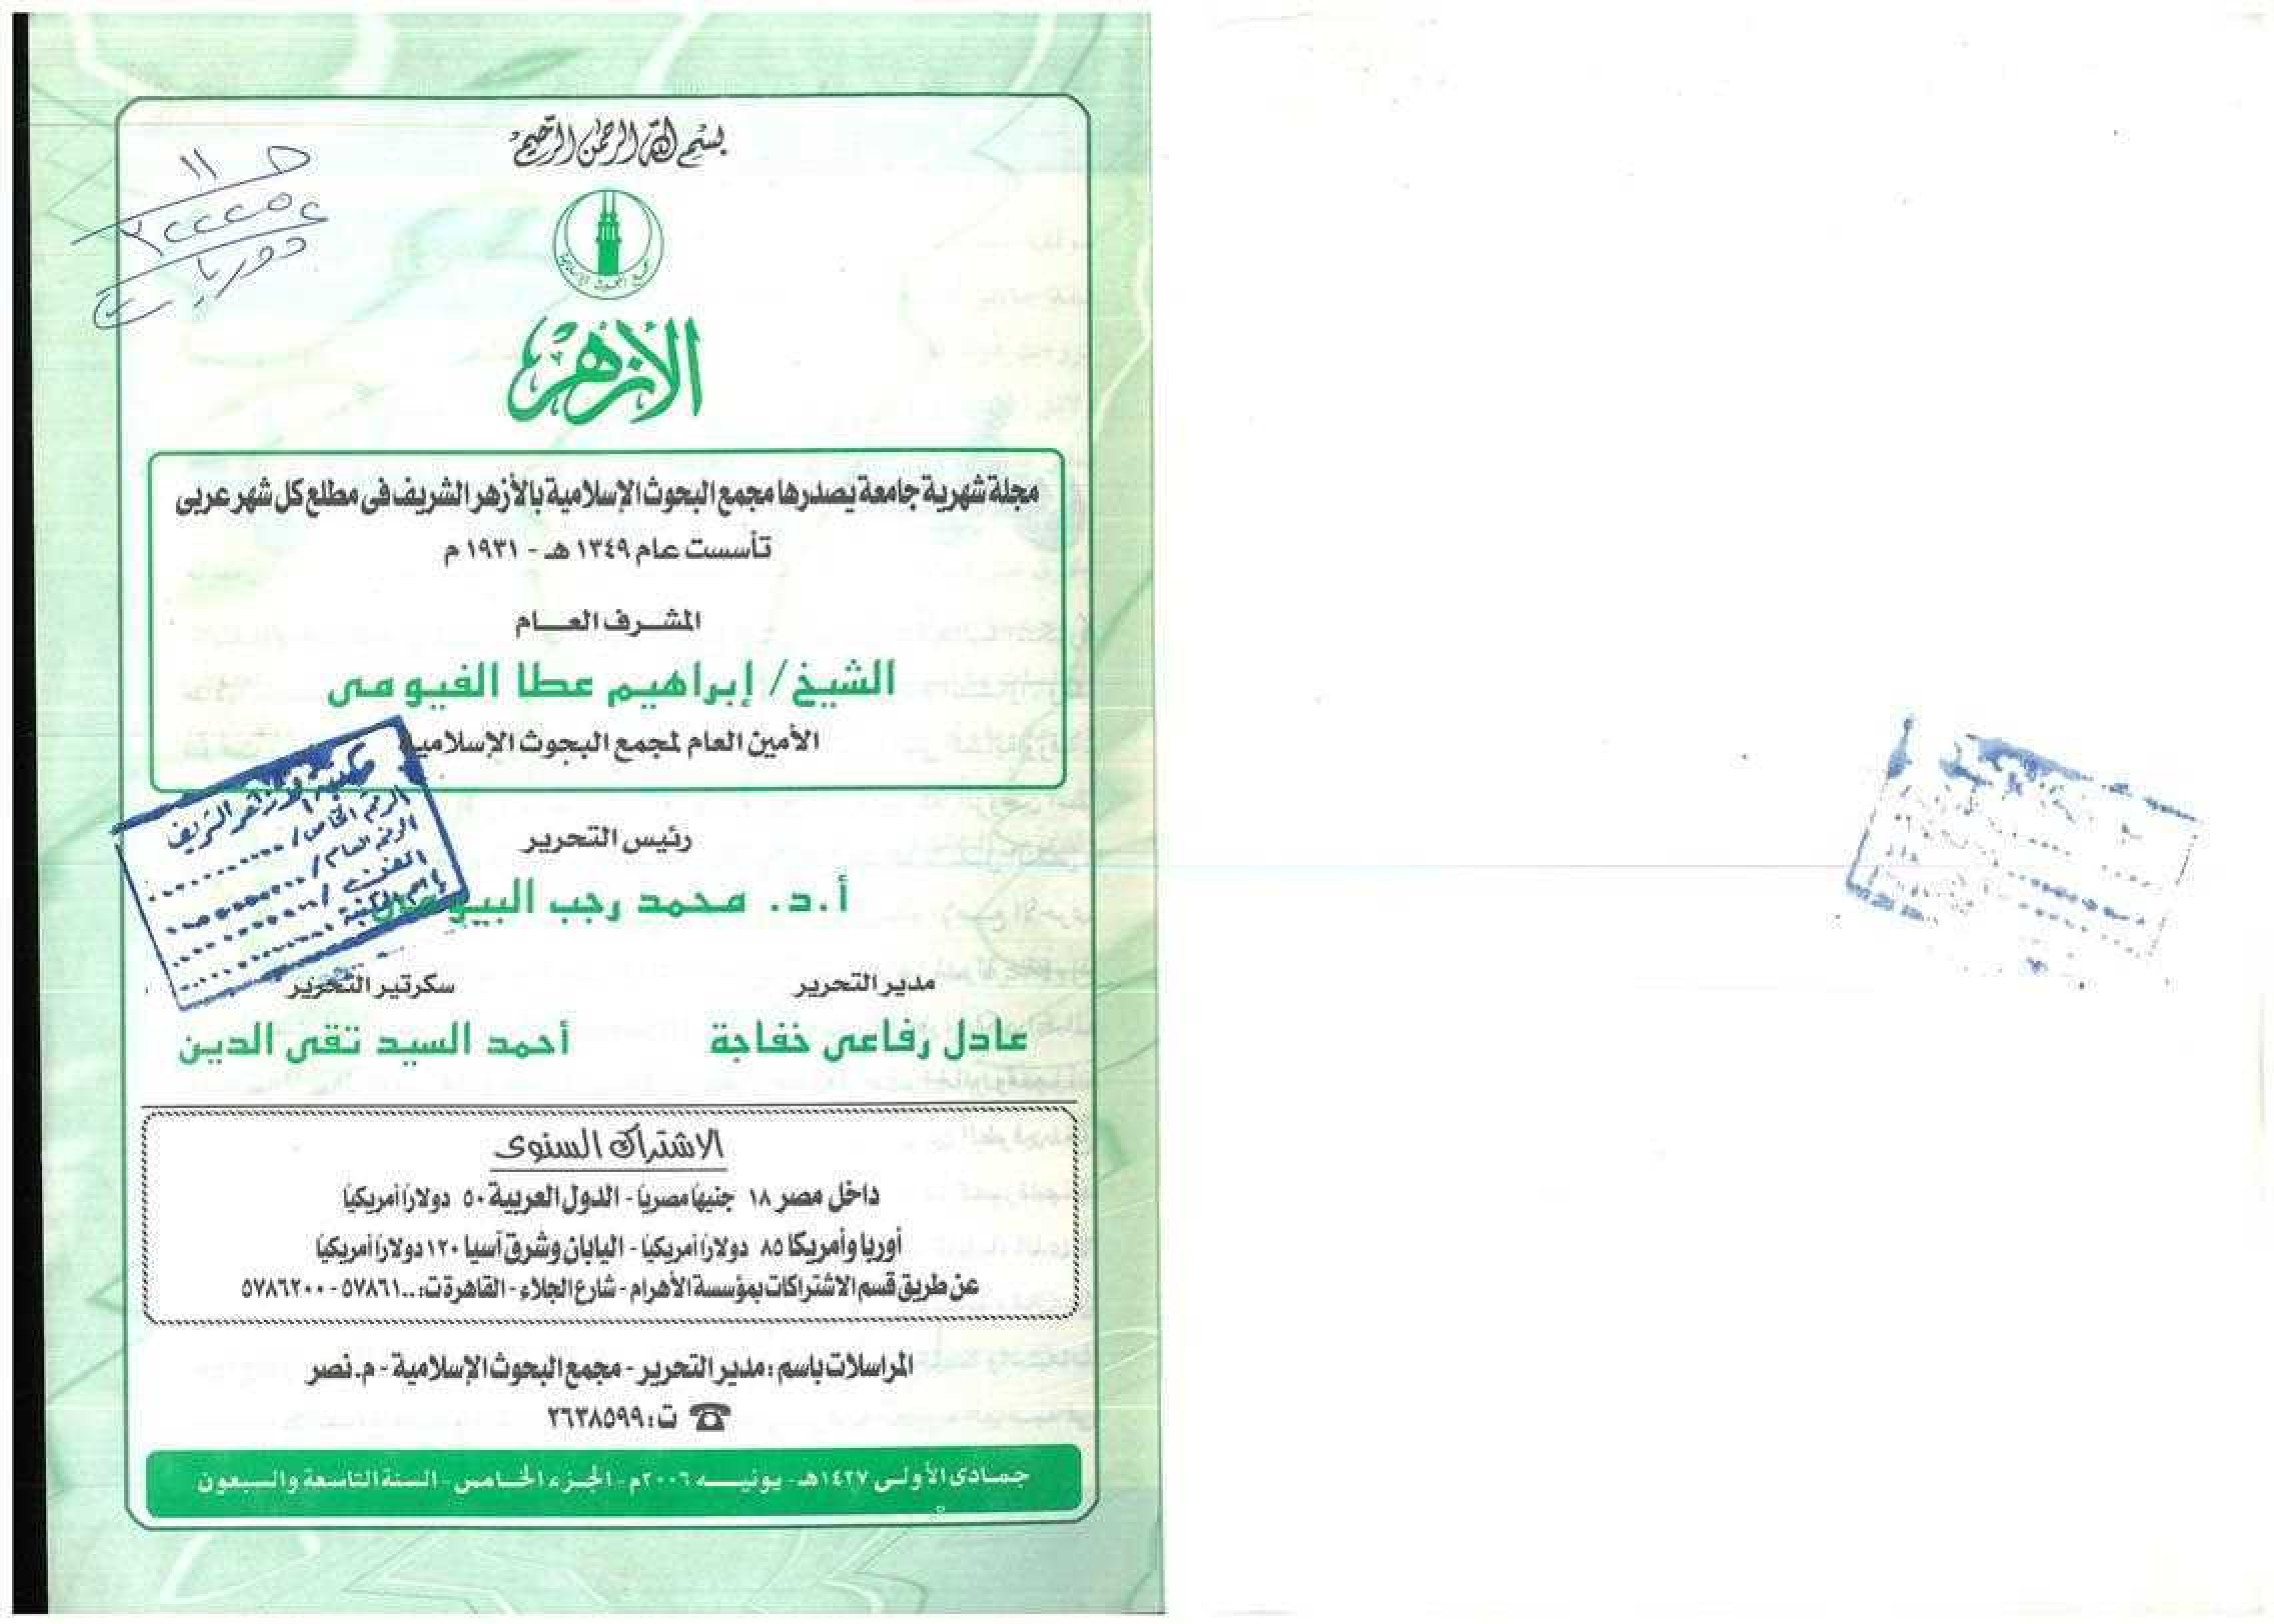 بسم الله الرحمن الرحيم
مجمع البحوث الإسلامية
الأزهر
مجلة شهرية جامعة يصدرها مجمع البحوث الإسلامية بالأزهر الشريف فى مطلع كل شهر عربى
تأسست عام ١٣٤٩ هـ - ١٩٣١ م
المشرف العام
الشيخ / إبراهيم عطا الفيومى
الأمين العام لمجمع البحوث الإسلامية
رئيس التحرير
أ.د. محمد رجب البيومى
مدير التحرير
عادل رفاعى خفاجة
سكرتير التحرير
أحمد السيد تقى الدين
الاشتراك السنوى
داخل مصر ١٨ جنيهًا مصريًا - الدول العربية ٥٠ دولارًا أمريكيًا
أوربا وأمريكا ٨٥ دولارًا أمريكيًا - اليابان وشرق آسيا ١٢٠ دولارًا أمريكيًا
عن طريق قسم الاشتراكات بمؤسسة الأهرام - شارع الجلاء - القاهرة ت: ٥٧٨٦١٠٠ - ٥٧٨٦٢٠٠
المراسلات باسم : مدير التحرير - مجمع البحوث الإسلامية - م. نصر
ت : ٢٦٣٨٥٩٩
جمادى الأولى ١٤٢٧هـ - يونيه ٢٠٠٦م - الجزء الخامس - السنة التاسعة والسبعون
١١
دوريات
مكتبة الأزهر الشريف
الرقم الخاص /
الرقم العام /
الفن /